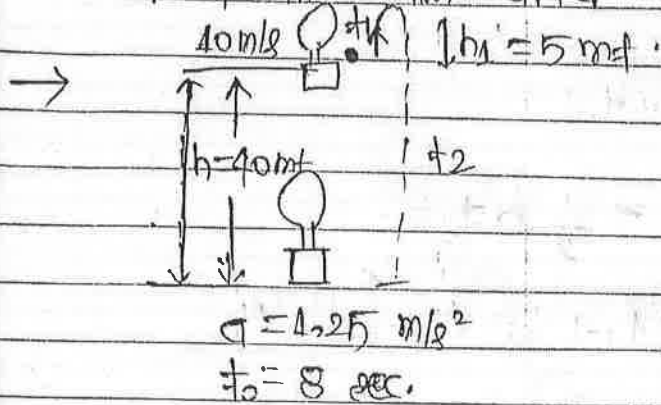 10 m/s t1 h1 = 5 mt.
h=40mt t2
a = 1.25 m/s²
t₀ = 8 sec.